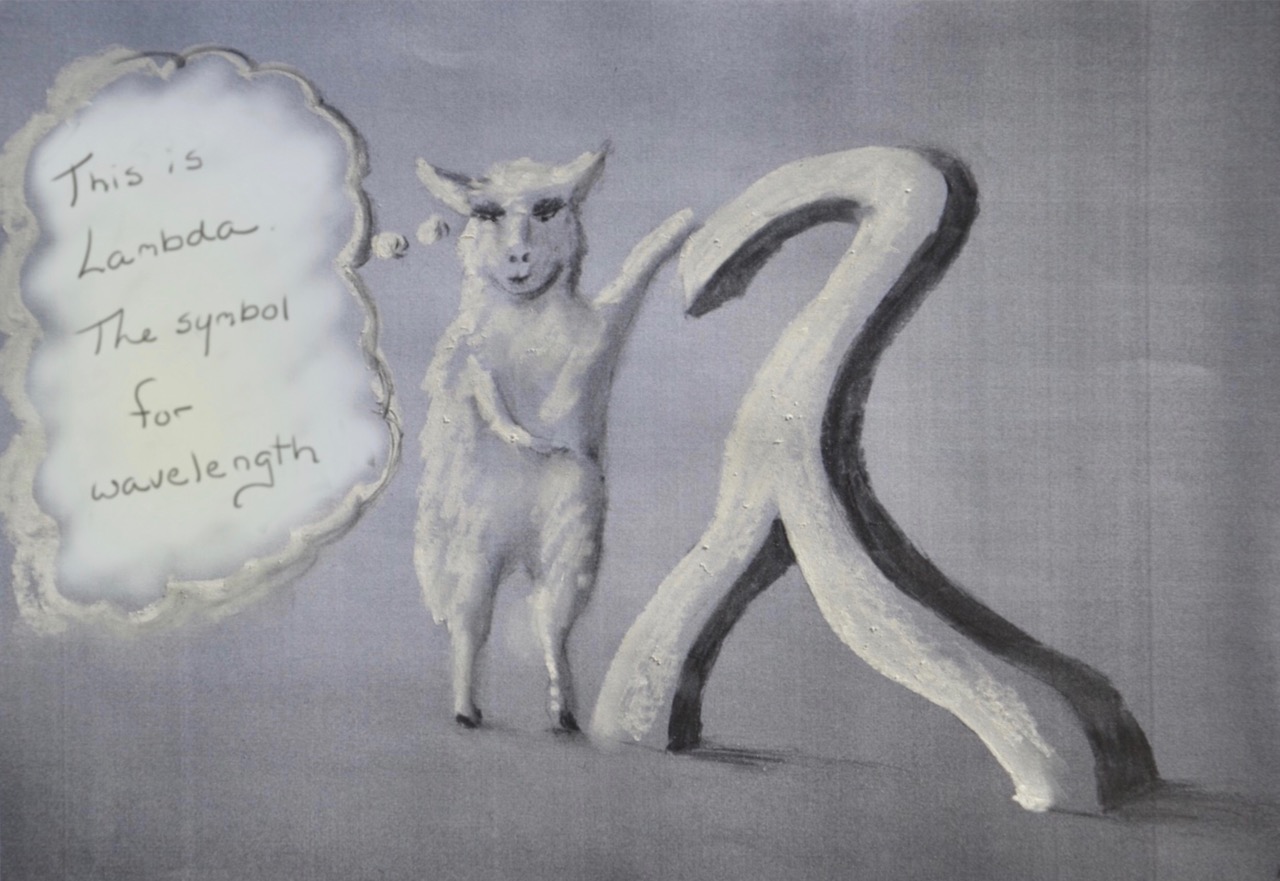 This is
Lambda.
The symbol
for
wavelength